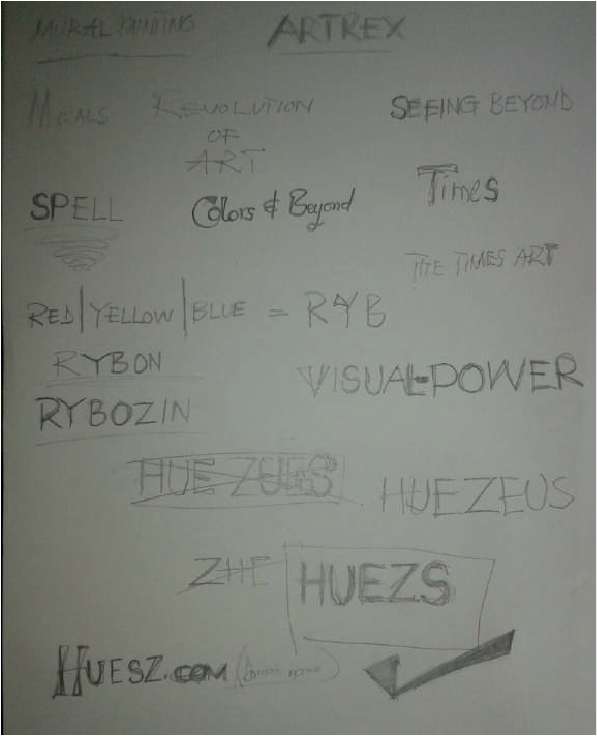 MURAL PAINTING ARTREX
MURALS REVOLUTION SEEING BEYOND
OF
ART
SPELL Colors & Beyond Times
THE TIMES ART
RED|YELLOW|BLUE = RYB
RYBON VISUAL-POWER
RYBOZIN
HUE ZUES HUEZEUS
ZHE HUEZS
HUESZ.COM